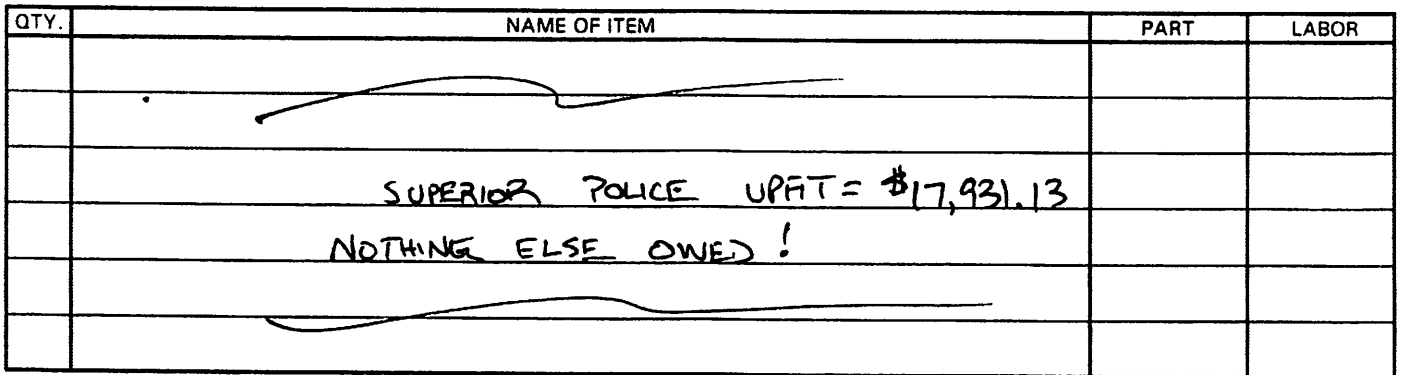 QTY. NAME OF ITEM PART LABOR
SUPERIOR POLICE UPFIT = $17,931.13
NOTHING ELSE OWED!